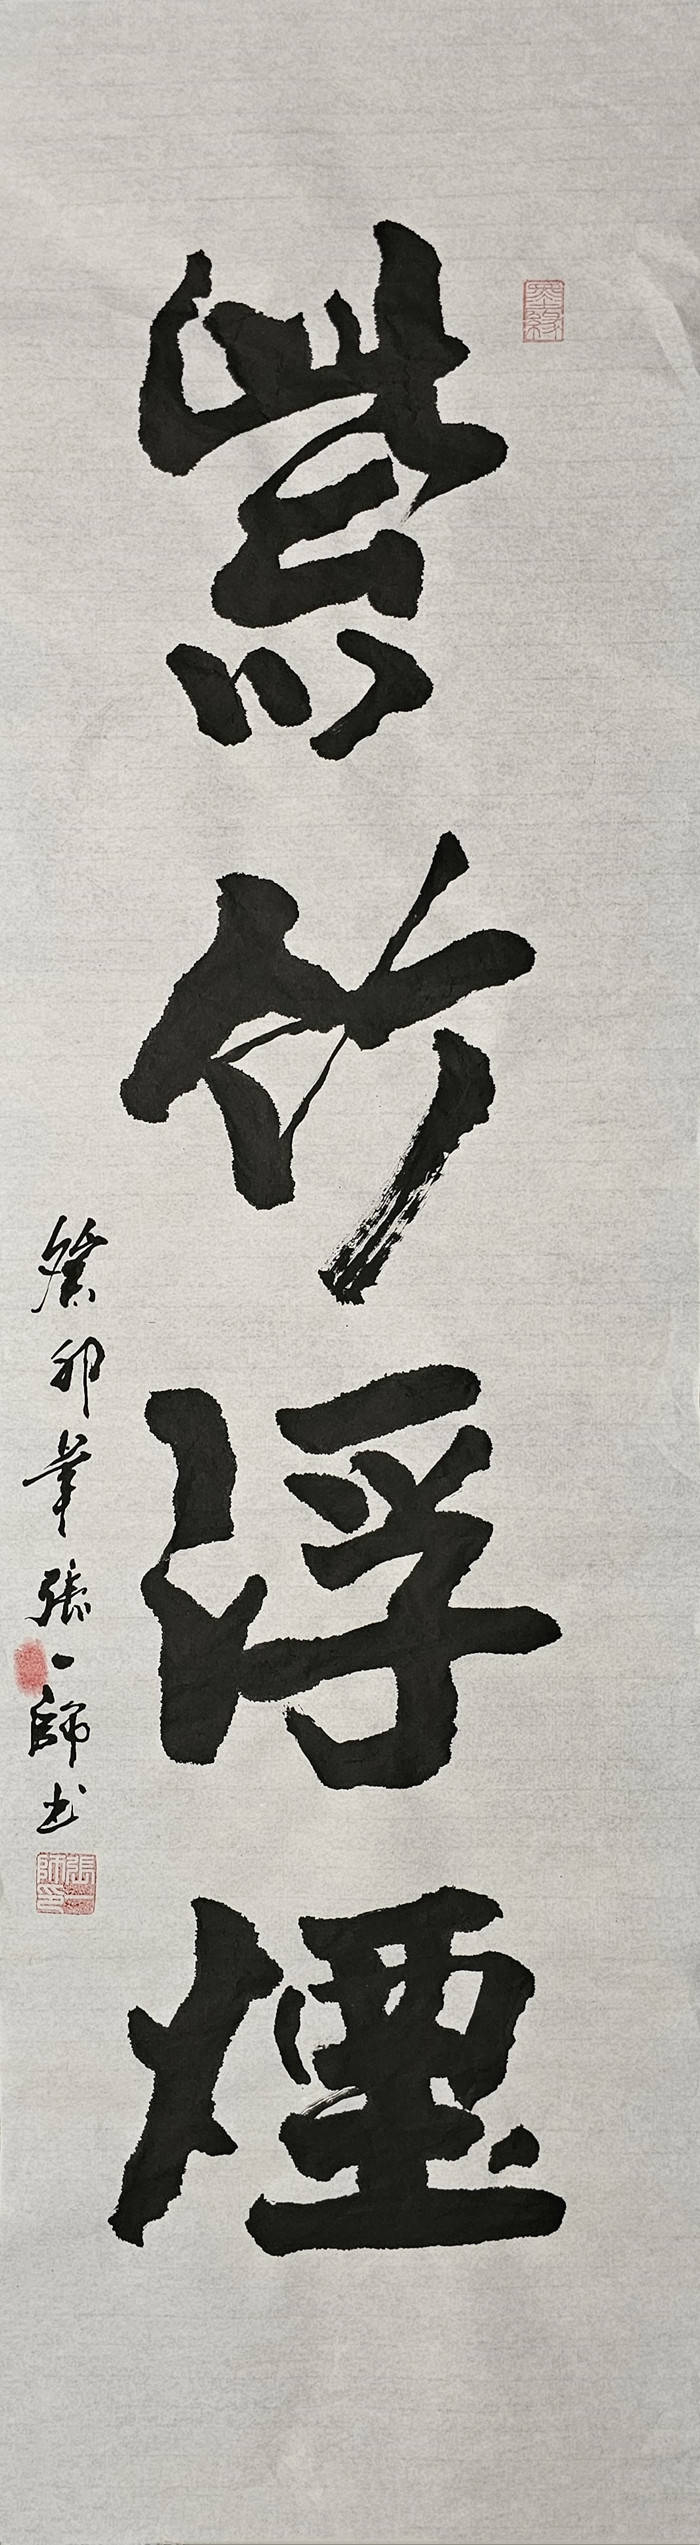 紫竹浮煙
癸卯年張一師书
張一師印